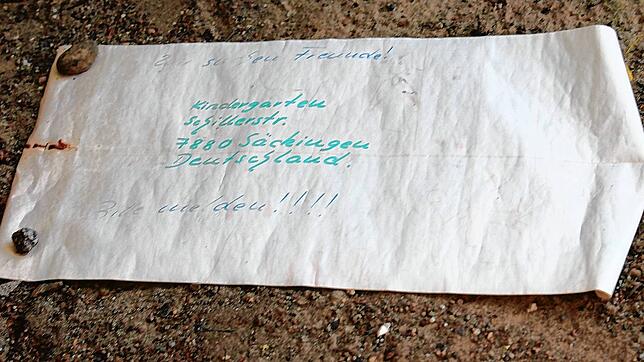 Wir suchen Freunde!
Kindergarten
Schillerstr.
7880 Säckingen
Deutschland.
Bitte melden!!!!